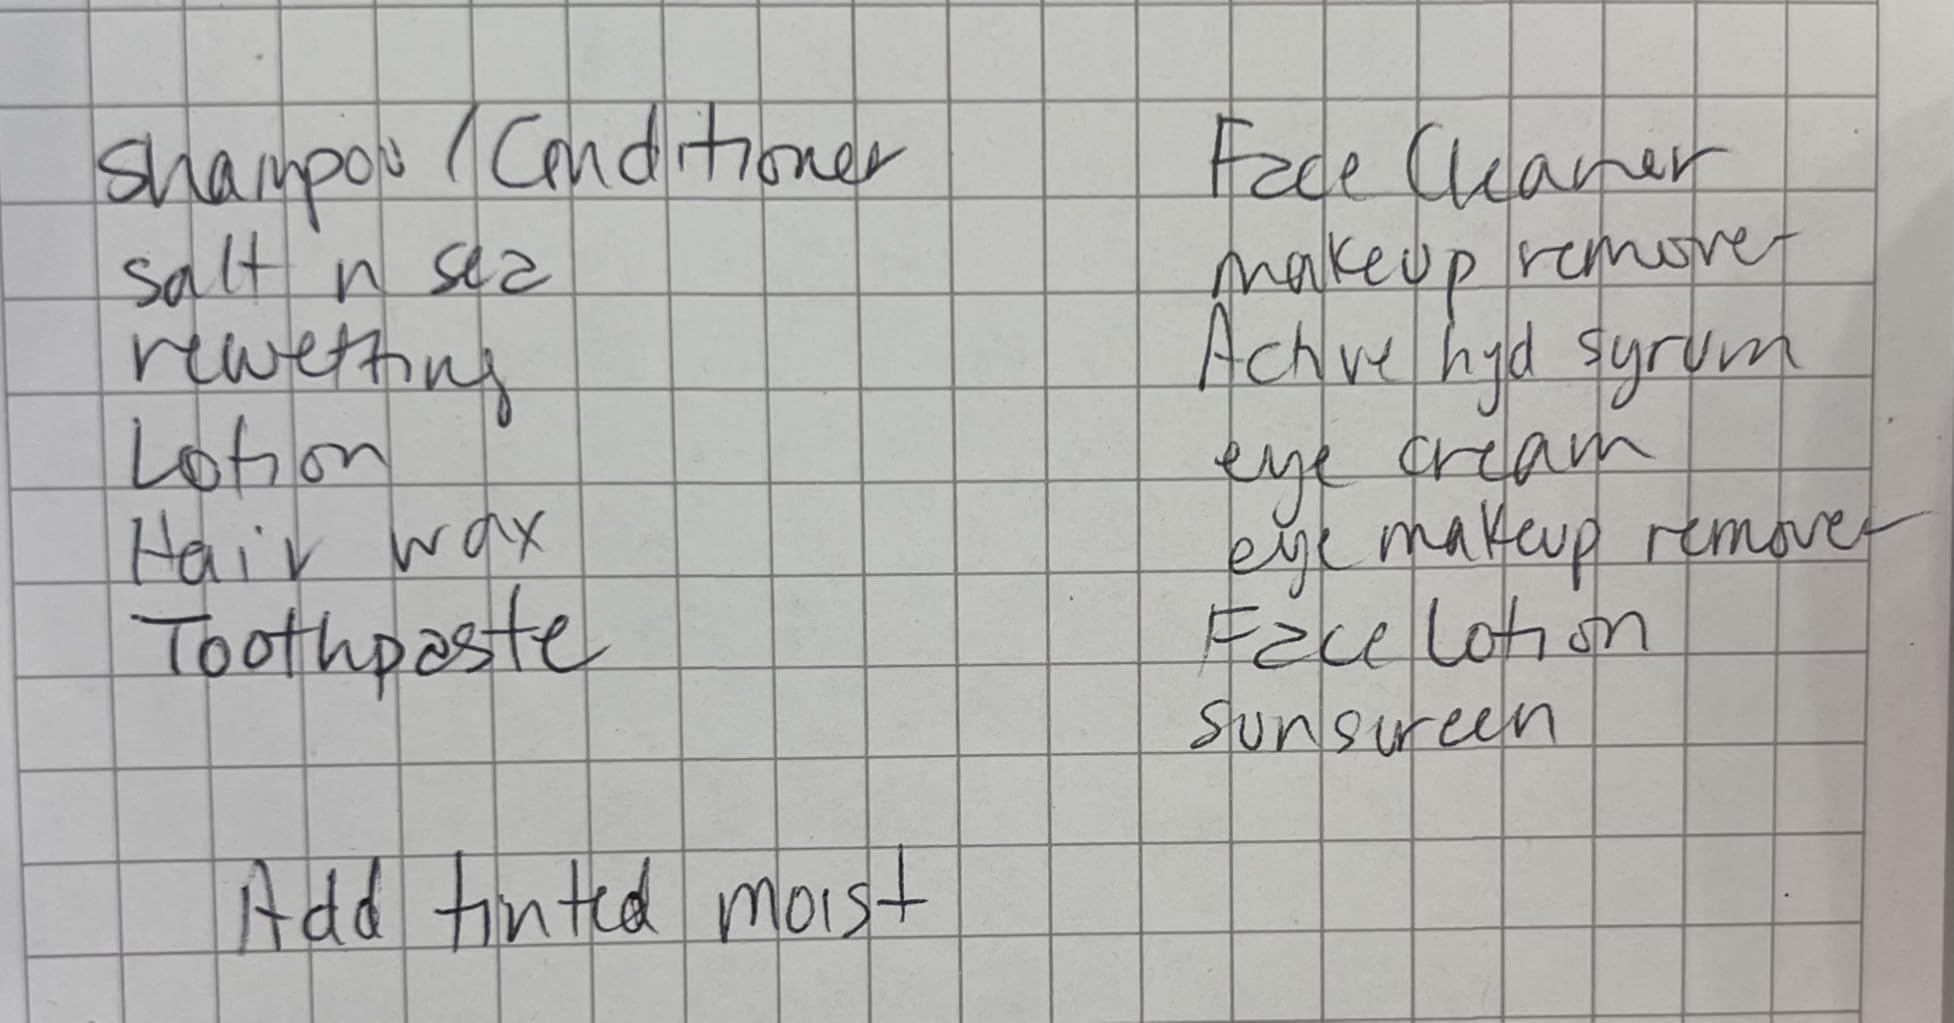 Shampoo / Conditioner
salt n sea
rewetting
Lotion
Hair wax
Toothpaste
Face Cleaner
makeup remover
Active hyd syrum
eye cream
eye makeup remover
Face lotion
sunscreen
Add tinted moist